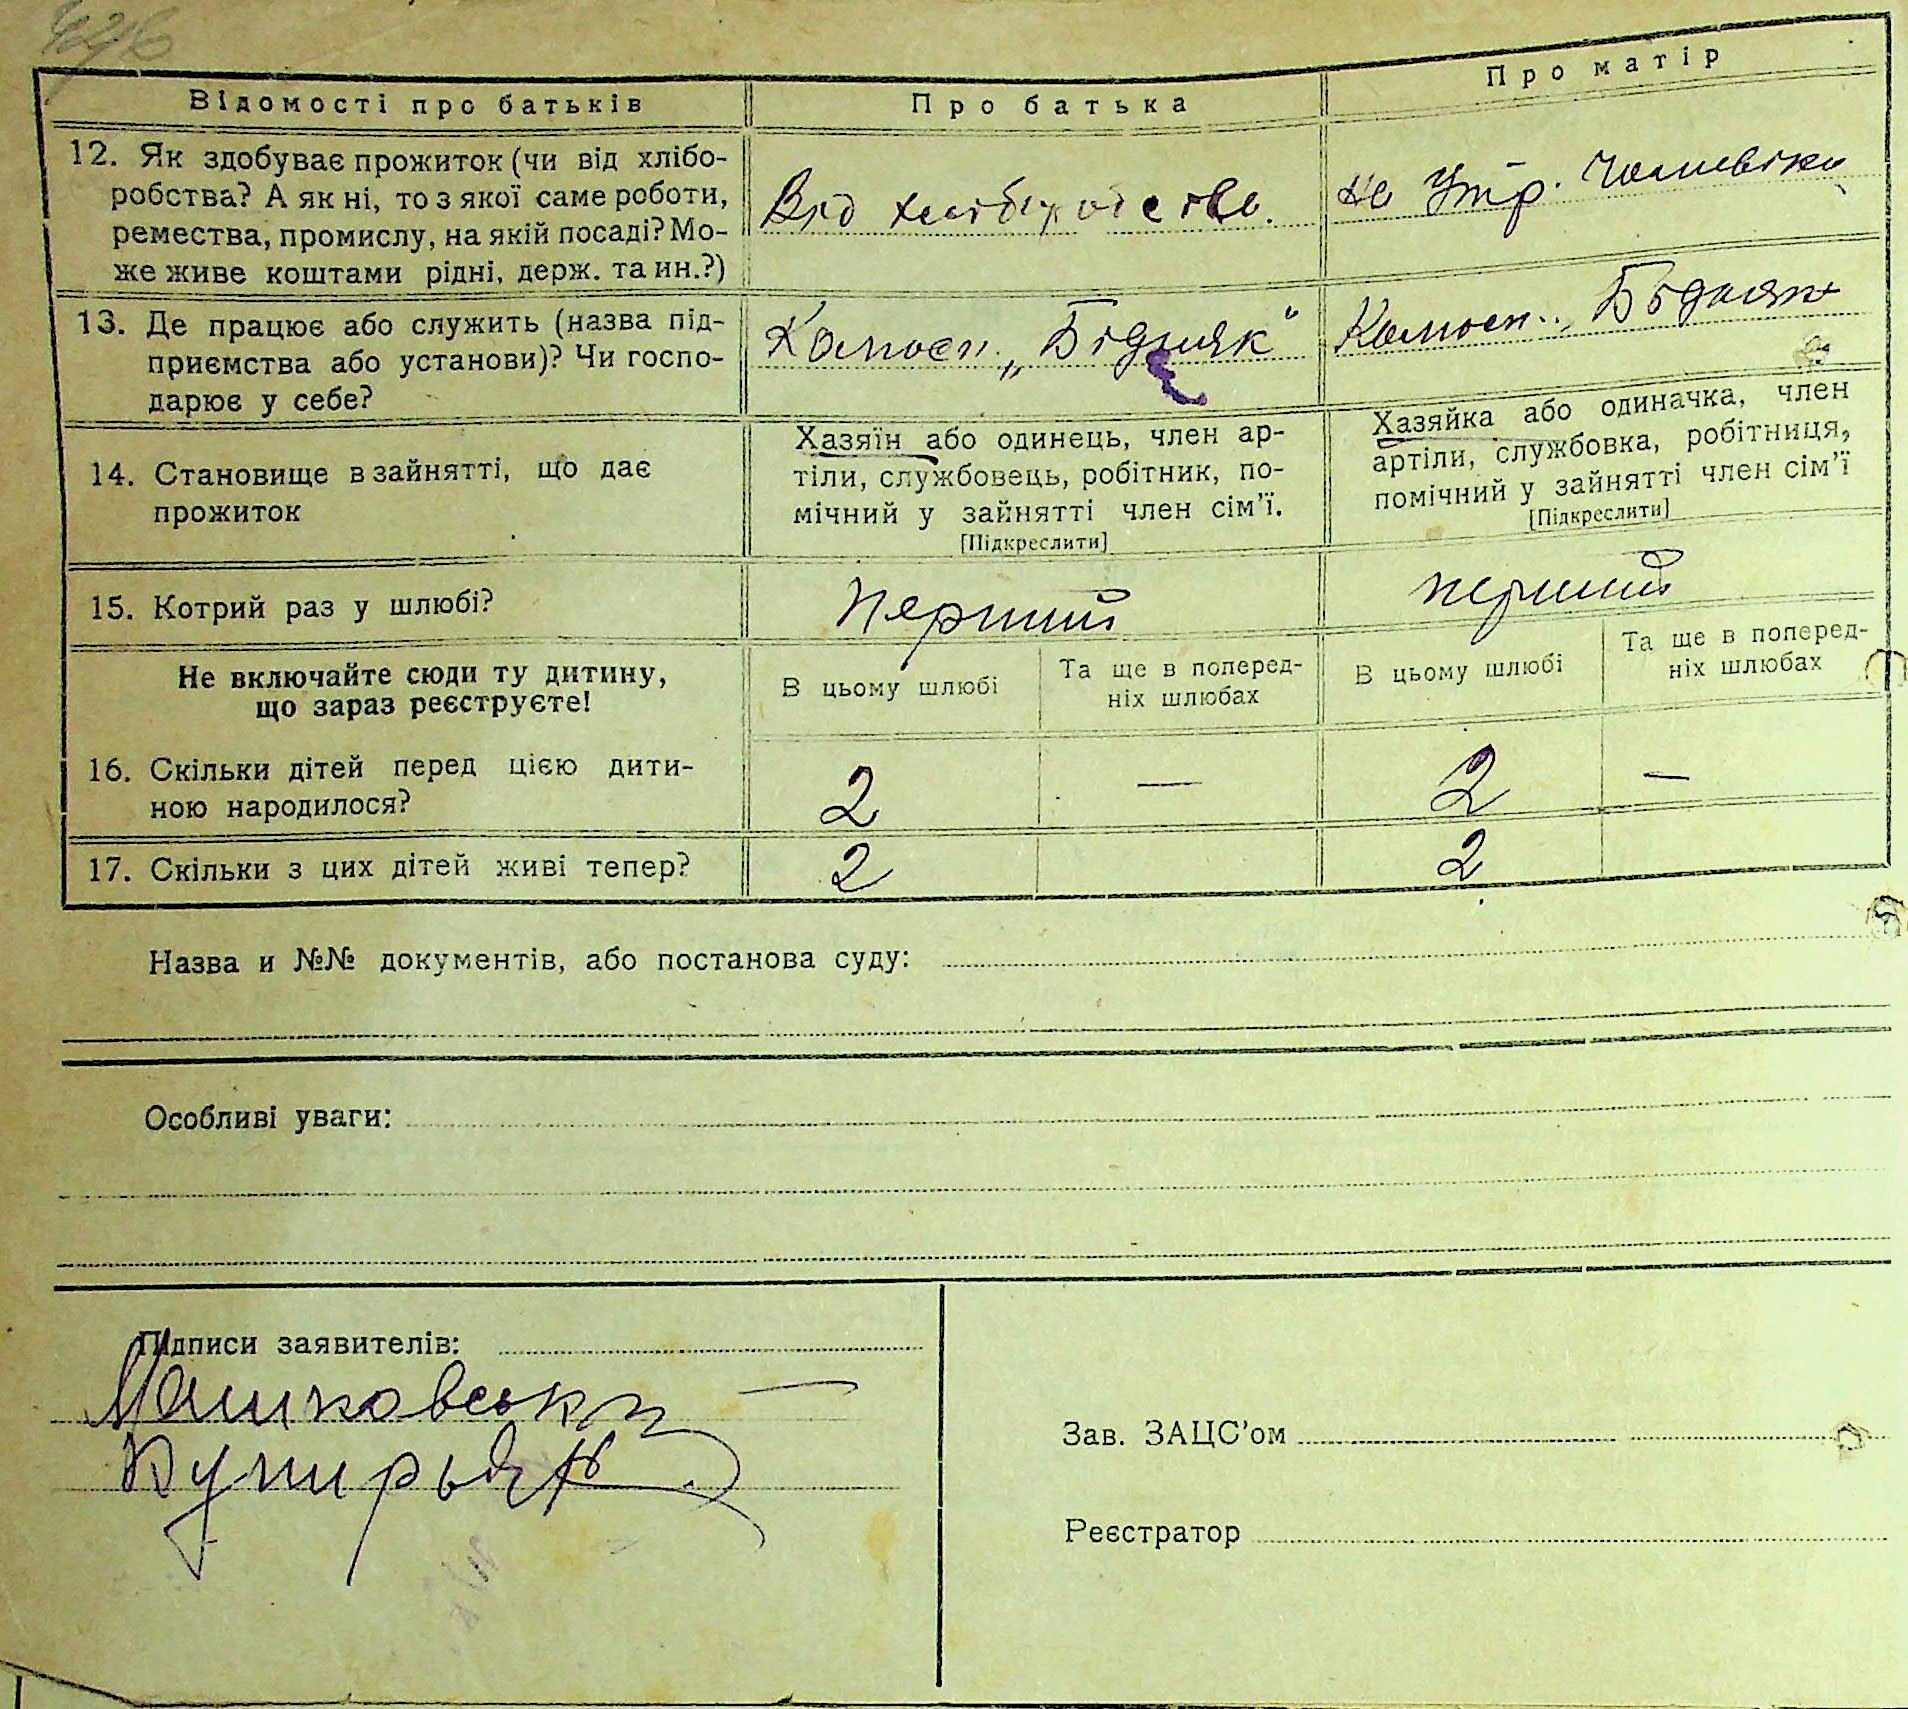 426
Відомості про батьків
Про батька
Про матір
12. Як здобуває прожиток (чи від хлібо-
робства? А як ні, то з якої саме роботи,
ремества, промислу, на якій посаді? Мо-
же живе коштами рідні, держ. та ин.?)
Від хліборобства.
на Утр. Чоловіка
13. Де працює або служить (назва під-
приємства або установи)? Чи госпо-
дарює у себе?
„Бідняк“
„Бідняк
14. Становище в зайнятті, що дає
прожиток
Хазяїн або одинець, член ар-
тіли, службовець, робітник, по-
мічний у зайнятті член сім'ї.
[Підкреслити]
Хазяйка або одиначка, член
артіли, службовка, робітниця,
помічний у зайнятті член сім'ї
[Підкреслити]
15. Котрий раз у шлюбі?
перший
перший
Не включайте сюди ту дитину,
що зараз реєструєте!
В цьому шлюбі
Та ще в поперед-
ніх шлюбах
В цьому шлюбі
Та ще в поперед-
ніх шлюбах
16. Скільки дітей перед цією дити-
ною народилося?
2
—
2
—
17. Скільки з цих дітей живі тепер?
2
2
Назва и №№ документів, або постанова суду:
Особливі уваги:
Підписи заявителів:
Зав. ЗАЦС'ом
Реєстратор